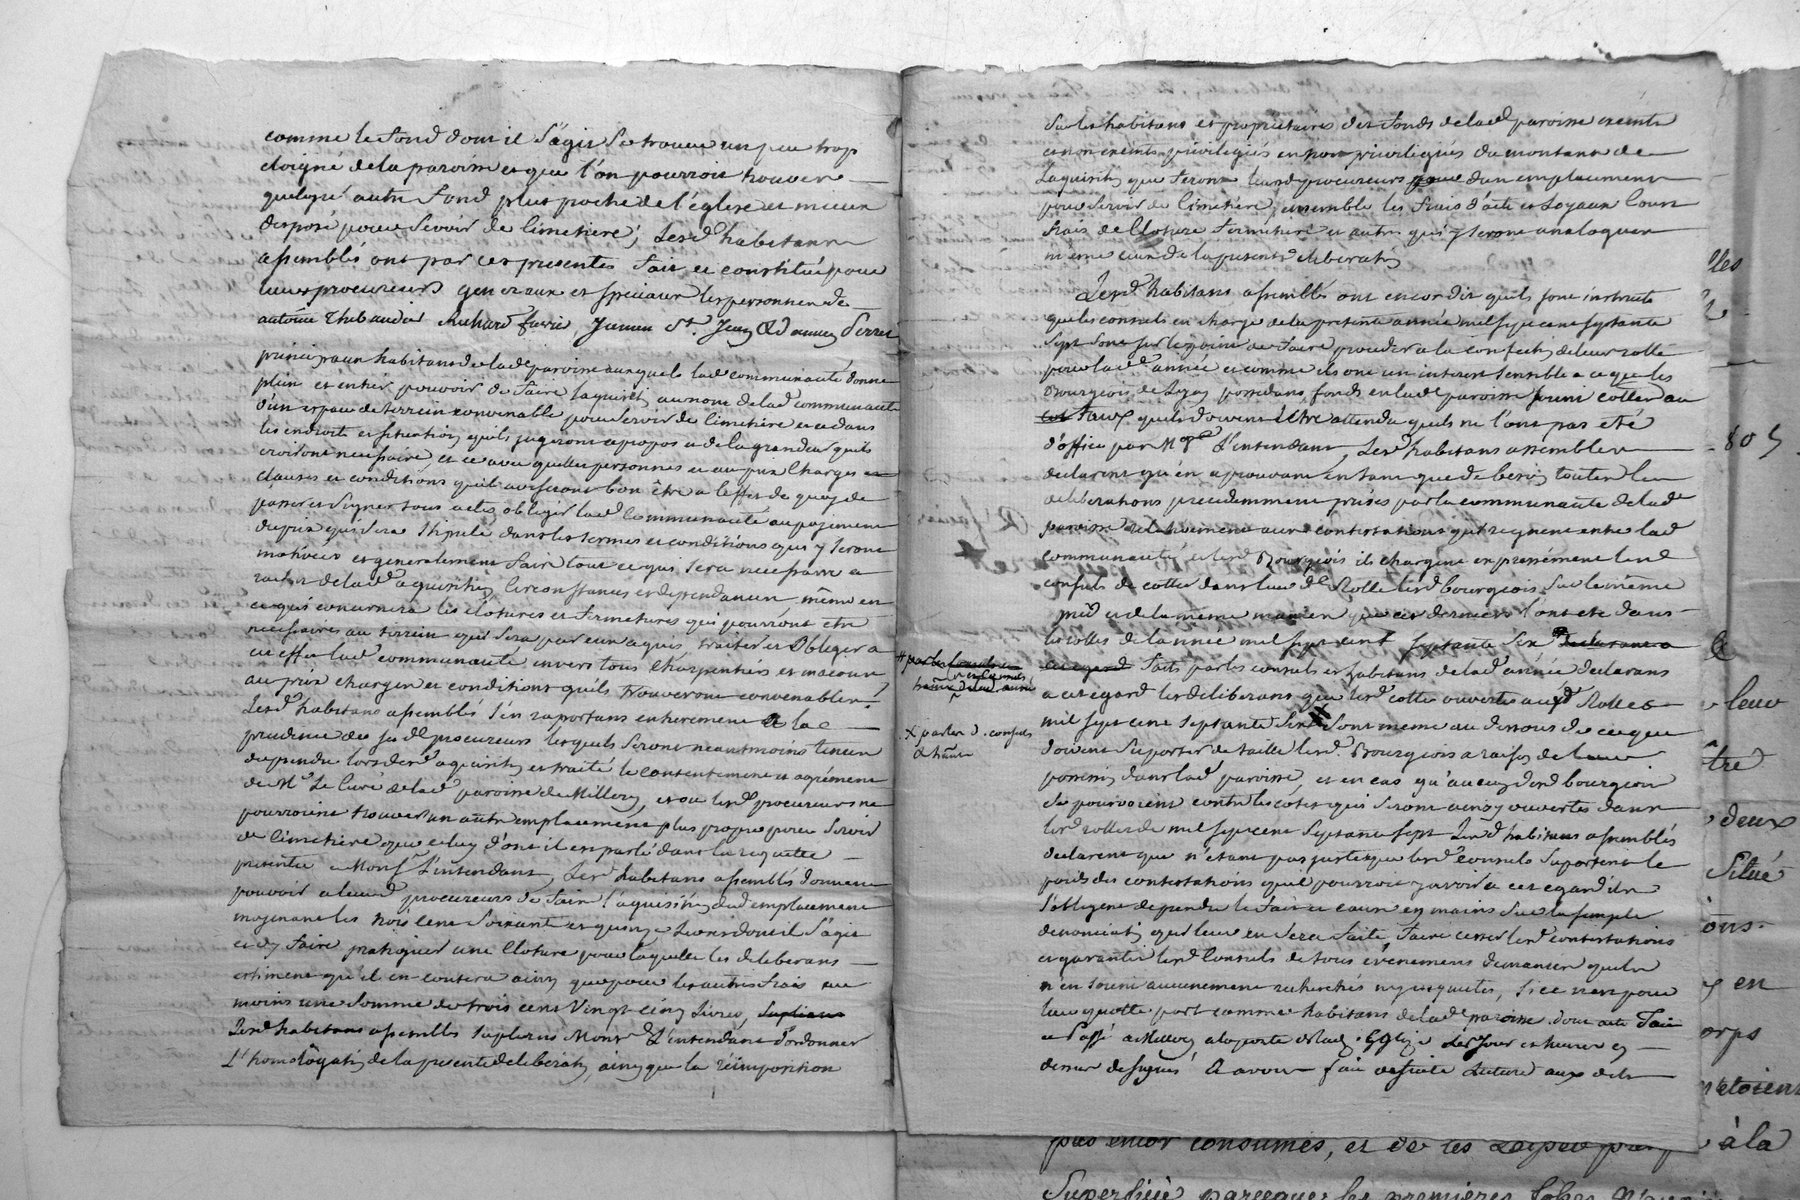 comme le fond dont il s'agit se trouve un peu trop
eloigné de la paroisse et que l'on pourroit trouver
quelque autre fond plus proche de l'église et mieux
disposé pour servir de Cimetiere; Lesd. habitans
assemblés ont par ces presentes fait et constitué pour
leurs procureurs generaux et speciaux les personnes de
antoine Thibaudier Richard favre,
principaux habitans de lad. paroisse auxquels lad. communauté donne
plein et entier pouvoir de faire l'aquisition au nom de lad. communauté
d'un espace de terrein convenable pour servir de Cimetiere et dans
les endroits et situation qu'ils jugeront apropos et de la grandeur qu'ils
croiront necessaire, et ce avec quelles personnes et au prix Charges et
clauses et conditions qu'ils aviseront bon être a l'effet de quoy de
passer et signer tous actes obliger lad. Communauté au payement
du prix qui sera stipulé dans les termes et conditions qui y seront
et generalement faire tout ce qui sera necessaire a
raison de lad. aquisition, Circonstances et dependances, même en
ce qui concernera les clotures et fermetures qui pourront etre
necessaires au terrein qui sera par eux aquis, traiter et Obliger a
cet effet lad. communauté envers tous Charpentiers et macons
au prix charges et conditions qu'ils trouveront convenables.
Lesd. habitans assemblés s'en raportans entierement a la
prudence des sd. procureurs lesquels seront neantmoins tenus
de prendre lors desd. aquisition et traité le consentement et agrément
de Mr. Le Curé de lad. paroisse de Millery, et ou lesd. procureurs ne
pourroient trouver un autre emplacement plus propre pour servir
de Cimetiere que celuy dont il est parlé dans la requette
presentée a Monsr. L'intendant, Lesd. habitans assemblés donnent
pouvoir a leursd. procureurs de faire l'aquisition dud. emplacement
moyenant les trois cent soixante et quinze Livres dont il s'agit
et d'y faire pratiquer une Cloture pour laquelle les deliberans
estiment qu'il en coutera ainsy que pour les autres frais au
moins une somme de trois cent Vingt cinq Livres,
Lesd. habitans assemblés suplient Monsr. L'intendant d'ordonner
L'homologation de la presente deliberation, ainsy que la réimposition
sur les habitans et proprietaires des fonds de lad. paroisse exempts
et non exempts privilegiés et non privilegiés du montant de
L'aquisition que feront leursd. procureurs d'un emplacement
pour servir de Cimetiere, ensemble les frais d'acte et Loyaux Couts
frais de Cloture fermeture et autres qui y seront analogues
même ceux de la presente deliberation
Lesd. habitans assemblés ont encor dit qu'ils sont instruits
que les consuls en charge de la presente année mil sept cent septante
sept sont sur le point de faire proceder a la confection de leur rolle
pour lad. année et comme ils ont un interest sensible a ce que les
Bourgeois de Lyon possedans fonds en lad. paroisse soient cottés au
taux qu'ils doivent l'être attendu qu'ils ne l'ont pas eté
d'office par Mgr. L'intendant, Lesd. habitans assemblés
declarent qu'en aprouvant en tant que de besoin toutes les
deliberations precedemment prises par la communauté de lad.
paroisse relativement aux contestations qui regnent entre lad.
communauté et lesd. Bourgeois ils chargent expressément lesd.
consuls de cotter dans leurd. Rolle lesd. bourgeois sur le même
pied et de la même maniere que ces derniers l'ont eté dans
les rolles de l'année mil sept cent septante six
faits par les consuls et habitans de lad. année declarans
a cet egard les deliberans que lesd. cottes ouvertes auxd. Rolles
mil sept cent septante six sont meme au dessous de ce que
doivent suporter de taille lesd. Bourgeois a raison de leurs
possessions dans lad. paroisse, et en cas qu'aucuns desd. bourgeois
se pourvoient contre les cottes qui seront ouvertes dans
lesd. rolles de mil sept cent septante sept Lesd. habitans assemblés
declarent que n'etant pas juste que lesd. Consuls suportent le
poids des contestations qu'il pourroit y avoir a cet egard ils
s'obligent de prendre le fait et cause en mains sur la simple
denonciation qui leur en sera faite, faire cesser lesd. contestations
et garantir lesd. Consuls de tous évenemens de maniere qu'ils
n'en soient aucunement recherchés ny inquietés, si ce n'est pour
leur quotte part comme habitans de lad. paroisse dont acte fait
et passé a Millery a la porte de lad. Eglise Les jour et heure cy
dessus designés
X par les d. consuls
lles
805
leur
tre
deux
Situé
ons-
en
orps
etoient
à la
pas encor consumés, et de les
Superficie parceque les premieres